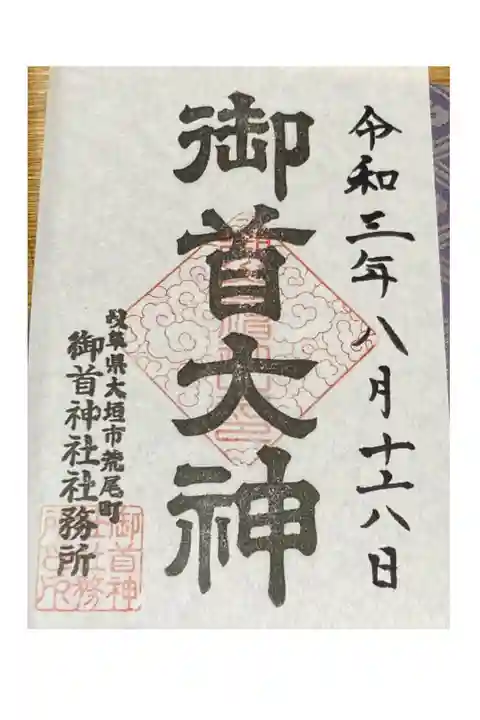 令和三年八月十六日
御首大神
岐阜県大垣市荒尾町
御首神社社務所